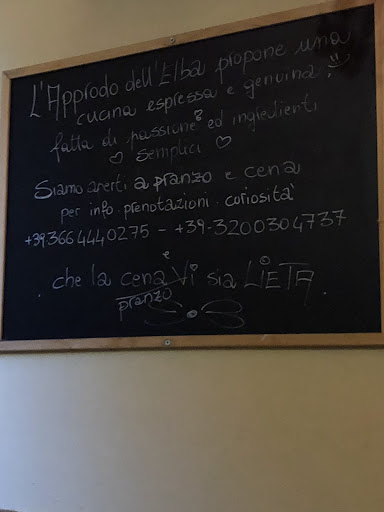 L'Approdo dell'Elba propone una
cucina espressa e genuina!
fatta di passione ed ingredienti
semplici
Siamo aperti a pranzo e cena
per info. prenotazioni. curiosità
+39 366 4440275 - +39-3200304737
che la cena Vi sia LIETA.
e
pranzo